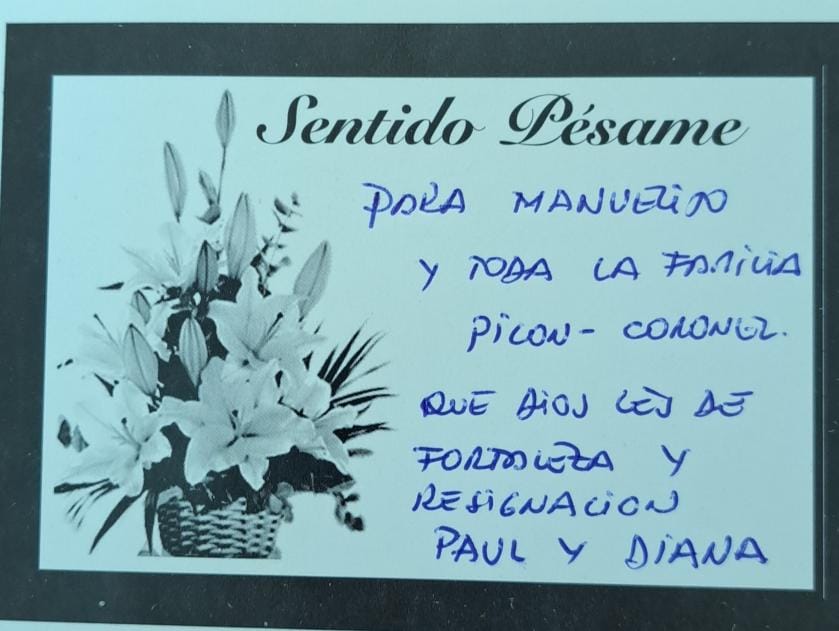 Sentido Pésame
PARA MANUELITO
Y TODA LA FAMILIA
PICON - CORONEL.
QUE DIOS LES DE
FORTALEZA Y
RESIGNACION
PAUL Y DIANA